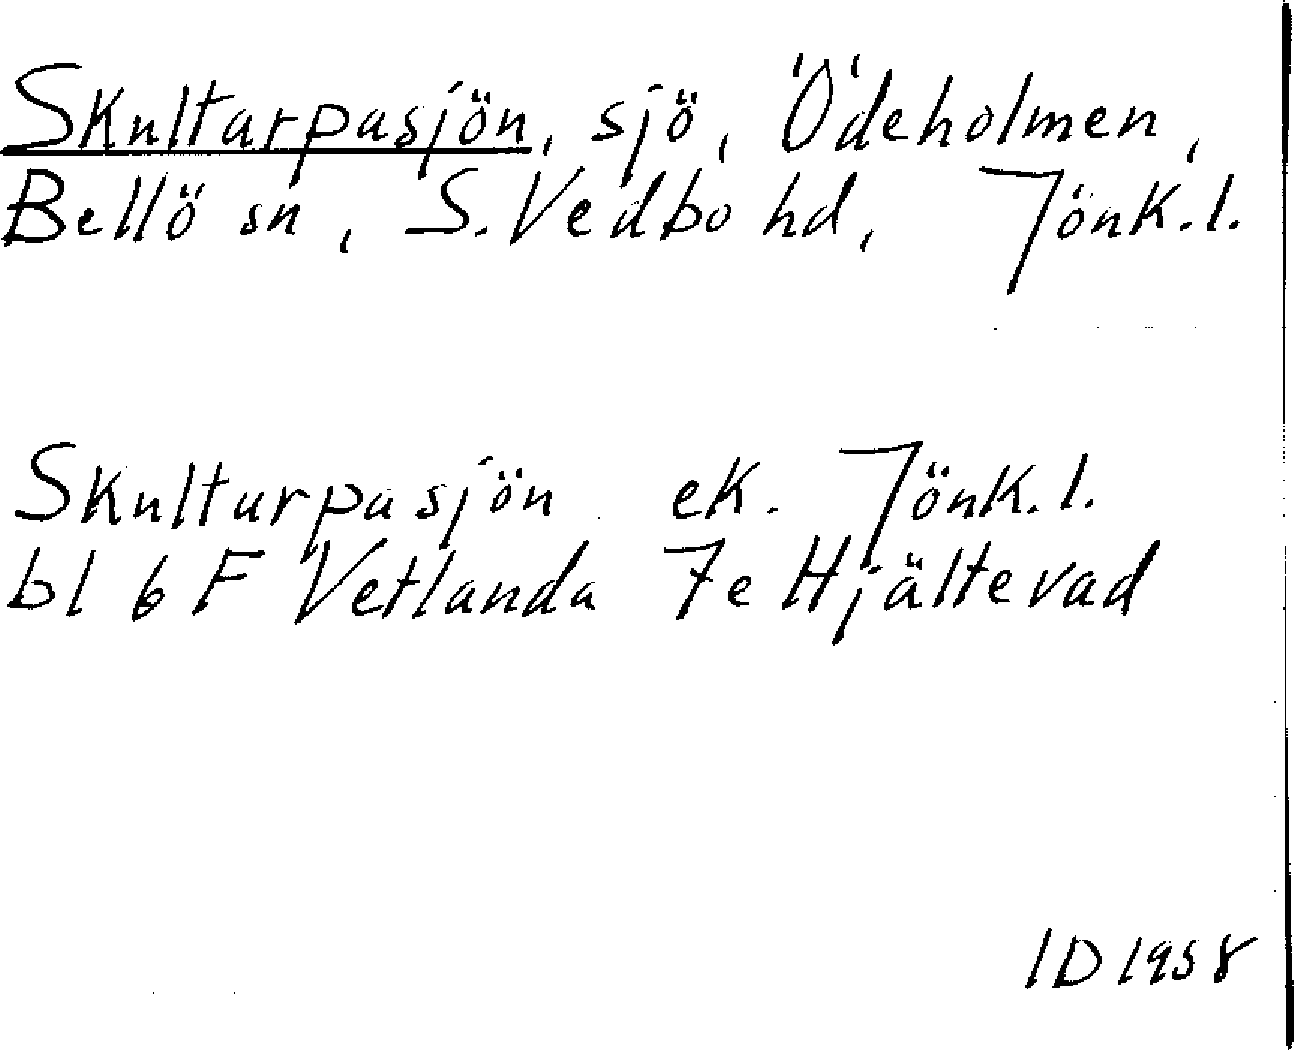 Skultarpasjön, sjö, Ödeholmen,
Bellö sn, S. Vedbo hd, Jönk. l.
Skultarpasjön ek. Jönk. l.
bl 6 F Vetlanda 7e Hjältevad
ID 1958